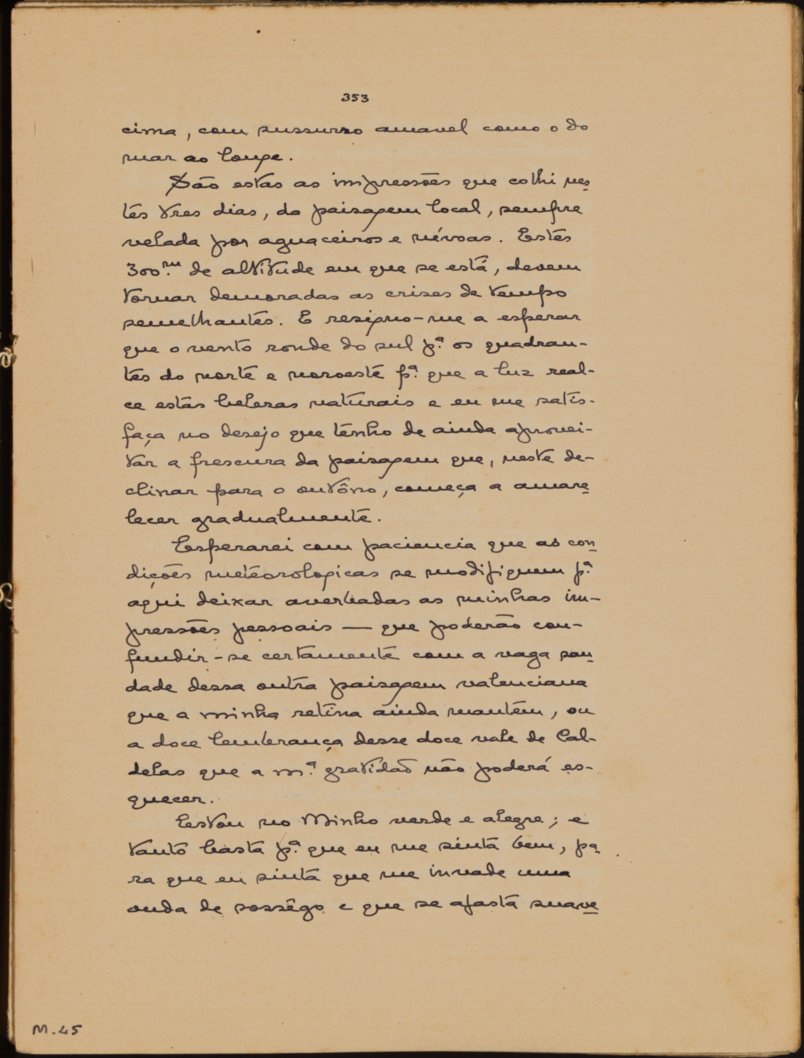 353
cima, com sussurro amavel como o do
mar ao longe.
São estas as impressões que colhi nes
tes tres dias, da paisagem local, sempre
velada por aguaceiros e névoas. Estes
300.m de altitude em que se está, devem
tornar demoradas as crises de tempo
semelhantes. E resigno-me a esperar
que o vento ronde do sul p.ª os quadran-
tes do norte e noroeste p.ª que a luz real-
ce estas belezas naturais e eu me satis-
faça no desejo que tenho de ainda aprovei-
tar a frescura da paisagem que, neste de-
clinar para o outôno, começa a amare
lecer gradualmente.
Esperarei com paciencia que as con
dições meteorologicas se modifiquem p.ª
aqui deixar averbadas as minhas im-
pressões pessoais — que poderão con-
fundir-se certamente com a vaga sau
dade dessa outra paisagem valenciana
que a minha retina ainda mantêm, ou
a doce lembrança desse doce vale de Cal-
delas que a m.ª gratidão não poderá es-
quecer.
Estou no Minho verde e alegre; e
tanto basta p.ª que eu me sinta bem, pa
ra que eu sinta que me invade uma
onda de sossêgo e que se afasta suave
M.45